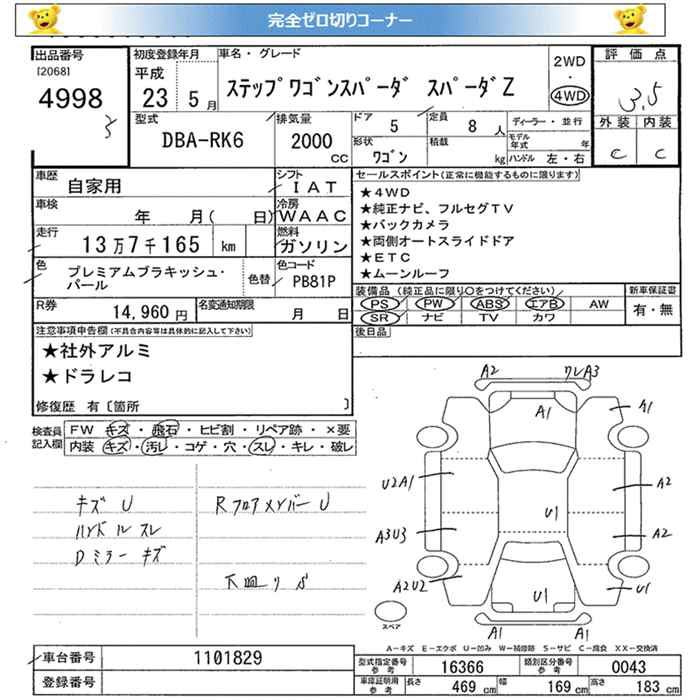 完全ゼロ切りコーナー
出品番号
[2068]
4998
初度登録年月
平成
23 5月
車名・グレード
ステップワゴンスパーダ スパーダZ
2WD
・
4WD
評価点
3.5
外装 内装
C C
型式
DBA-RK6
排気量
2000
CC
ドア
5
定員
8 人
形状
ワゴン
積載
kg
ディーラー・並行
モデル年式 年
ハンドル 左・右
車歴
自家用
シフト
IAT
車検
年 月( 日)
冷房
WAAC
走行
13万7千165 km
燃料
ガソリン
色
プレミアムブラキッシュ・パール
色替
色コード
PB81P
R券
14,960円
名変通知期限
月 日
セールスポイント(正常に機能するものに限ります)
★4WD
★純正ナビ、フルセグTV
★バックカメラ
★両側オートスライドドア
★ETC
★ムーンルーフ
装備品(純正品に限り○をつけてください)
PS PW ABS エアB AW
SR ナビ TV カワ
新車保証書
有・無
後日品
注意事項申告欄(不具合内容等は具体的に記入して下さい)
★社外アルミ
★ドラレコ
修復歴 有〔箇所 〕
検査員記入欄
FW キズ・飛石・ヒビ割・リペア跡・×要
内装 キズ・汚レ・コゲ・穴・スレ・キレ・破レ
キズ U
ハンドルスレ
Dミラーキズ
RフロアメンバーU
下回りサ
A2 ワレA3
A1 A1
U2A1 A2
U1
A3U3 A2
A2U2 U1 U1
A1 A1
スペア
A−キズ E−エクボ U−凹み W−補修跡 S−サビ C−腐食 XX−交換済
車台番号
1101829
登録番号
型式指定番号参考
16366
類別区分番号参考
0043
車庫証明用参考
長さ 469 cm
幅 169 cm
高さ 183 cm